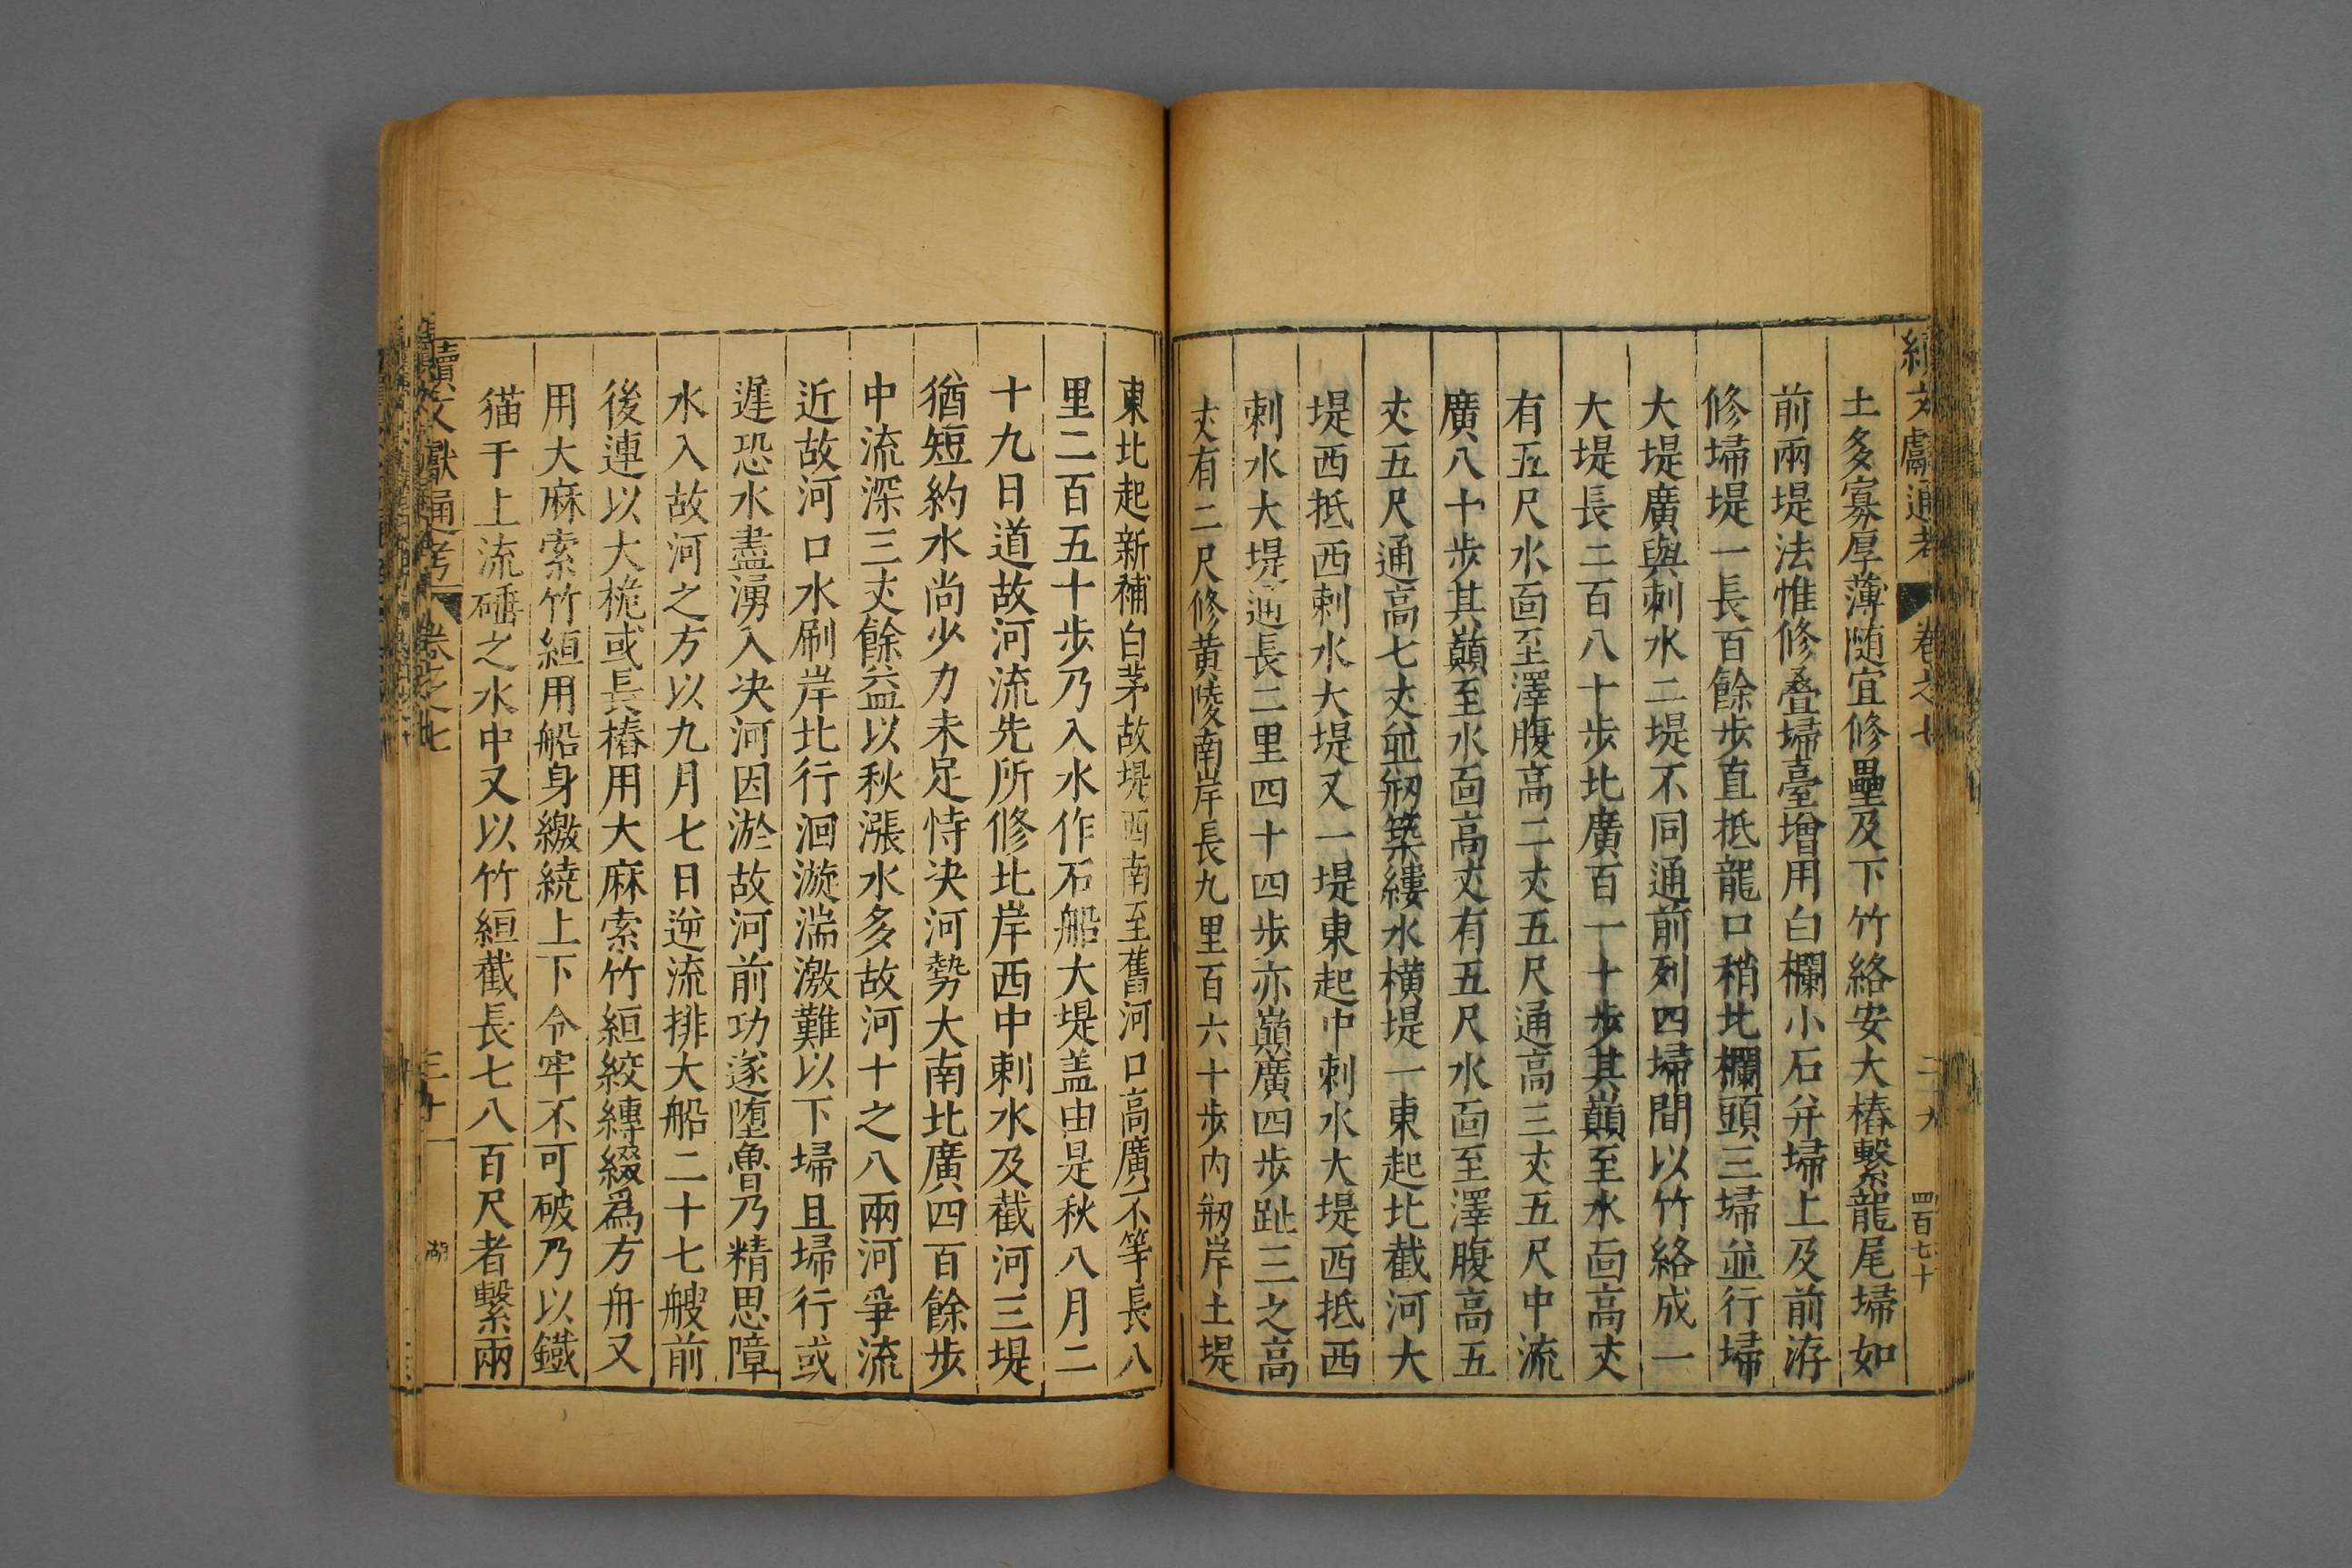 續文獻通考 卷之七 二十九 四百七十
土多寡厚薄随宜修壘及下竹絡安大樁繫龍尾埽如
前兩堤法惟修叠埽臺增用白欄小石并埽上及前洊
修埽堤一長百餘步直抵龍口稍北欄頭三埽並行埽
大堤廣與刺水二堤不同通前列四埽間以竹絡成一
大堤長二百八十步北廣百一十步其巔至水面高丈
有五尺水面至澤腹高二丈五尺通高三丈五尺中流
廣八十步其巔至水面高丈有五尺水面至澤腹高五
丈五尺通高七丈並剏築縷水横堤一東起北截河大
堤西抵西刺水大堤又一堤東起中刺水大堤西抵西
刺水大堤通長二里四十四步亦巔廣四步趾三之高
丈有二尺修黄陵南岸長九里百六十步内剏岸土堤
東北起新補白茅故堤西南至舊河口高廣不等長八
里二百五十步乃入水作石船大堤盖由是秋八月二
十九日道故河流先所修北岸西中刺水及截河三堤
猶短約水尚少力未足恃决河勢大南北廣四百餘步
中流深三丈餘益以秋漲水多故河十之八兩河爭流
近故河口水刷岸北行洄漩湍激難以下埽且埽行或
遲恐水盡湧入决河因淤故河前功遂堕魯乃精思障
水入故河之方以九月七日逆流排大船二十七艘前
後連以大桅或長樁用大麻索竹絙絞縳綴爲方舟又
用大麻索竹絙用船身繳繞上下令牢不可破乃以鐵
猫于上流硾之水中又以竹絙截長七八百尺者繫兩
續文獻通考 卷之七 三十 湖